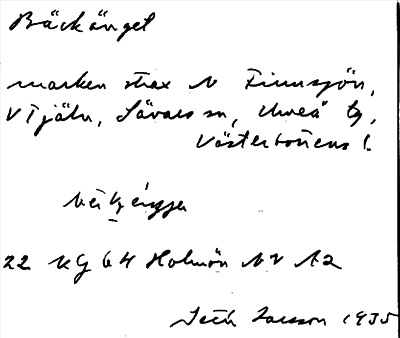 Bäckänget
marken strax N Finnsjön,
V Tjäln, Sävars sn, Umeå tg,
Västerbottens l.
22 KG 64 Holmön NV 12
Seth Larsson 1935